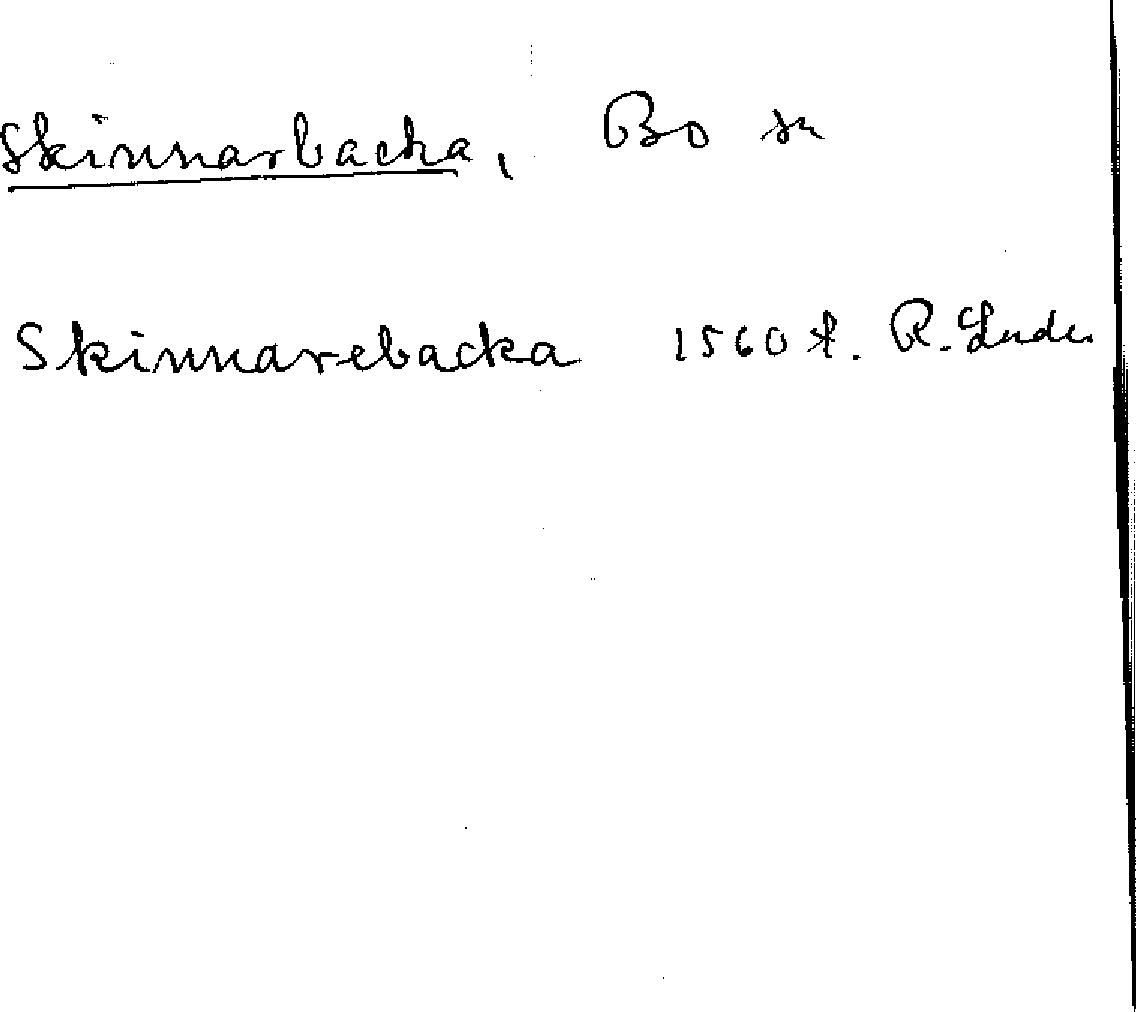 Skinnarbacka, Bo sn
Skinnarebacka 1560 t. R. Linde